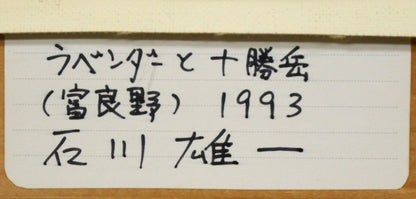 ラベンダーと十勝岳
(富良野) 1993
石川 雄一